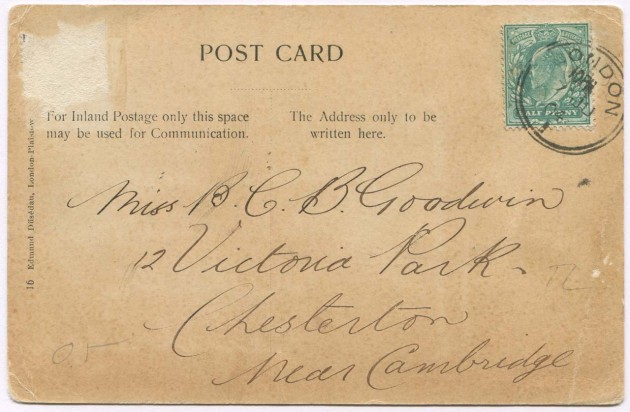 POST CARD
For Inland Postage only this space
may be used for Communication.
The Address only to be
written here.
HALF PENNY
LONDON
Miss B. C. B. Goodwin
12 Victoria Park
Chesterton
Near Cambridge
16 Edmund Düsédau, London-Plaistow